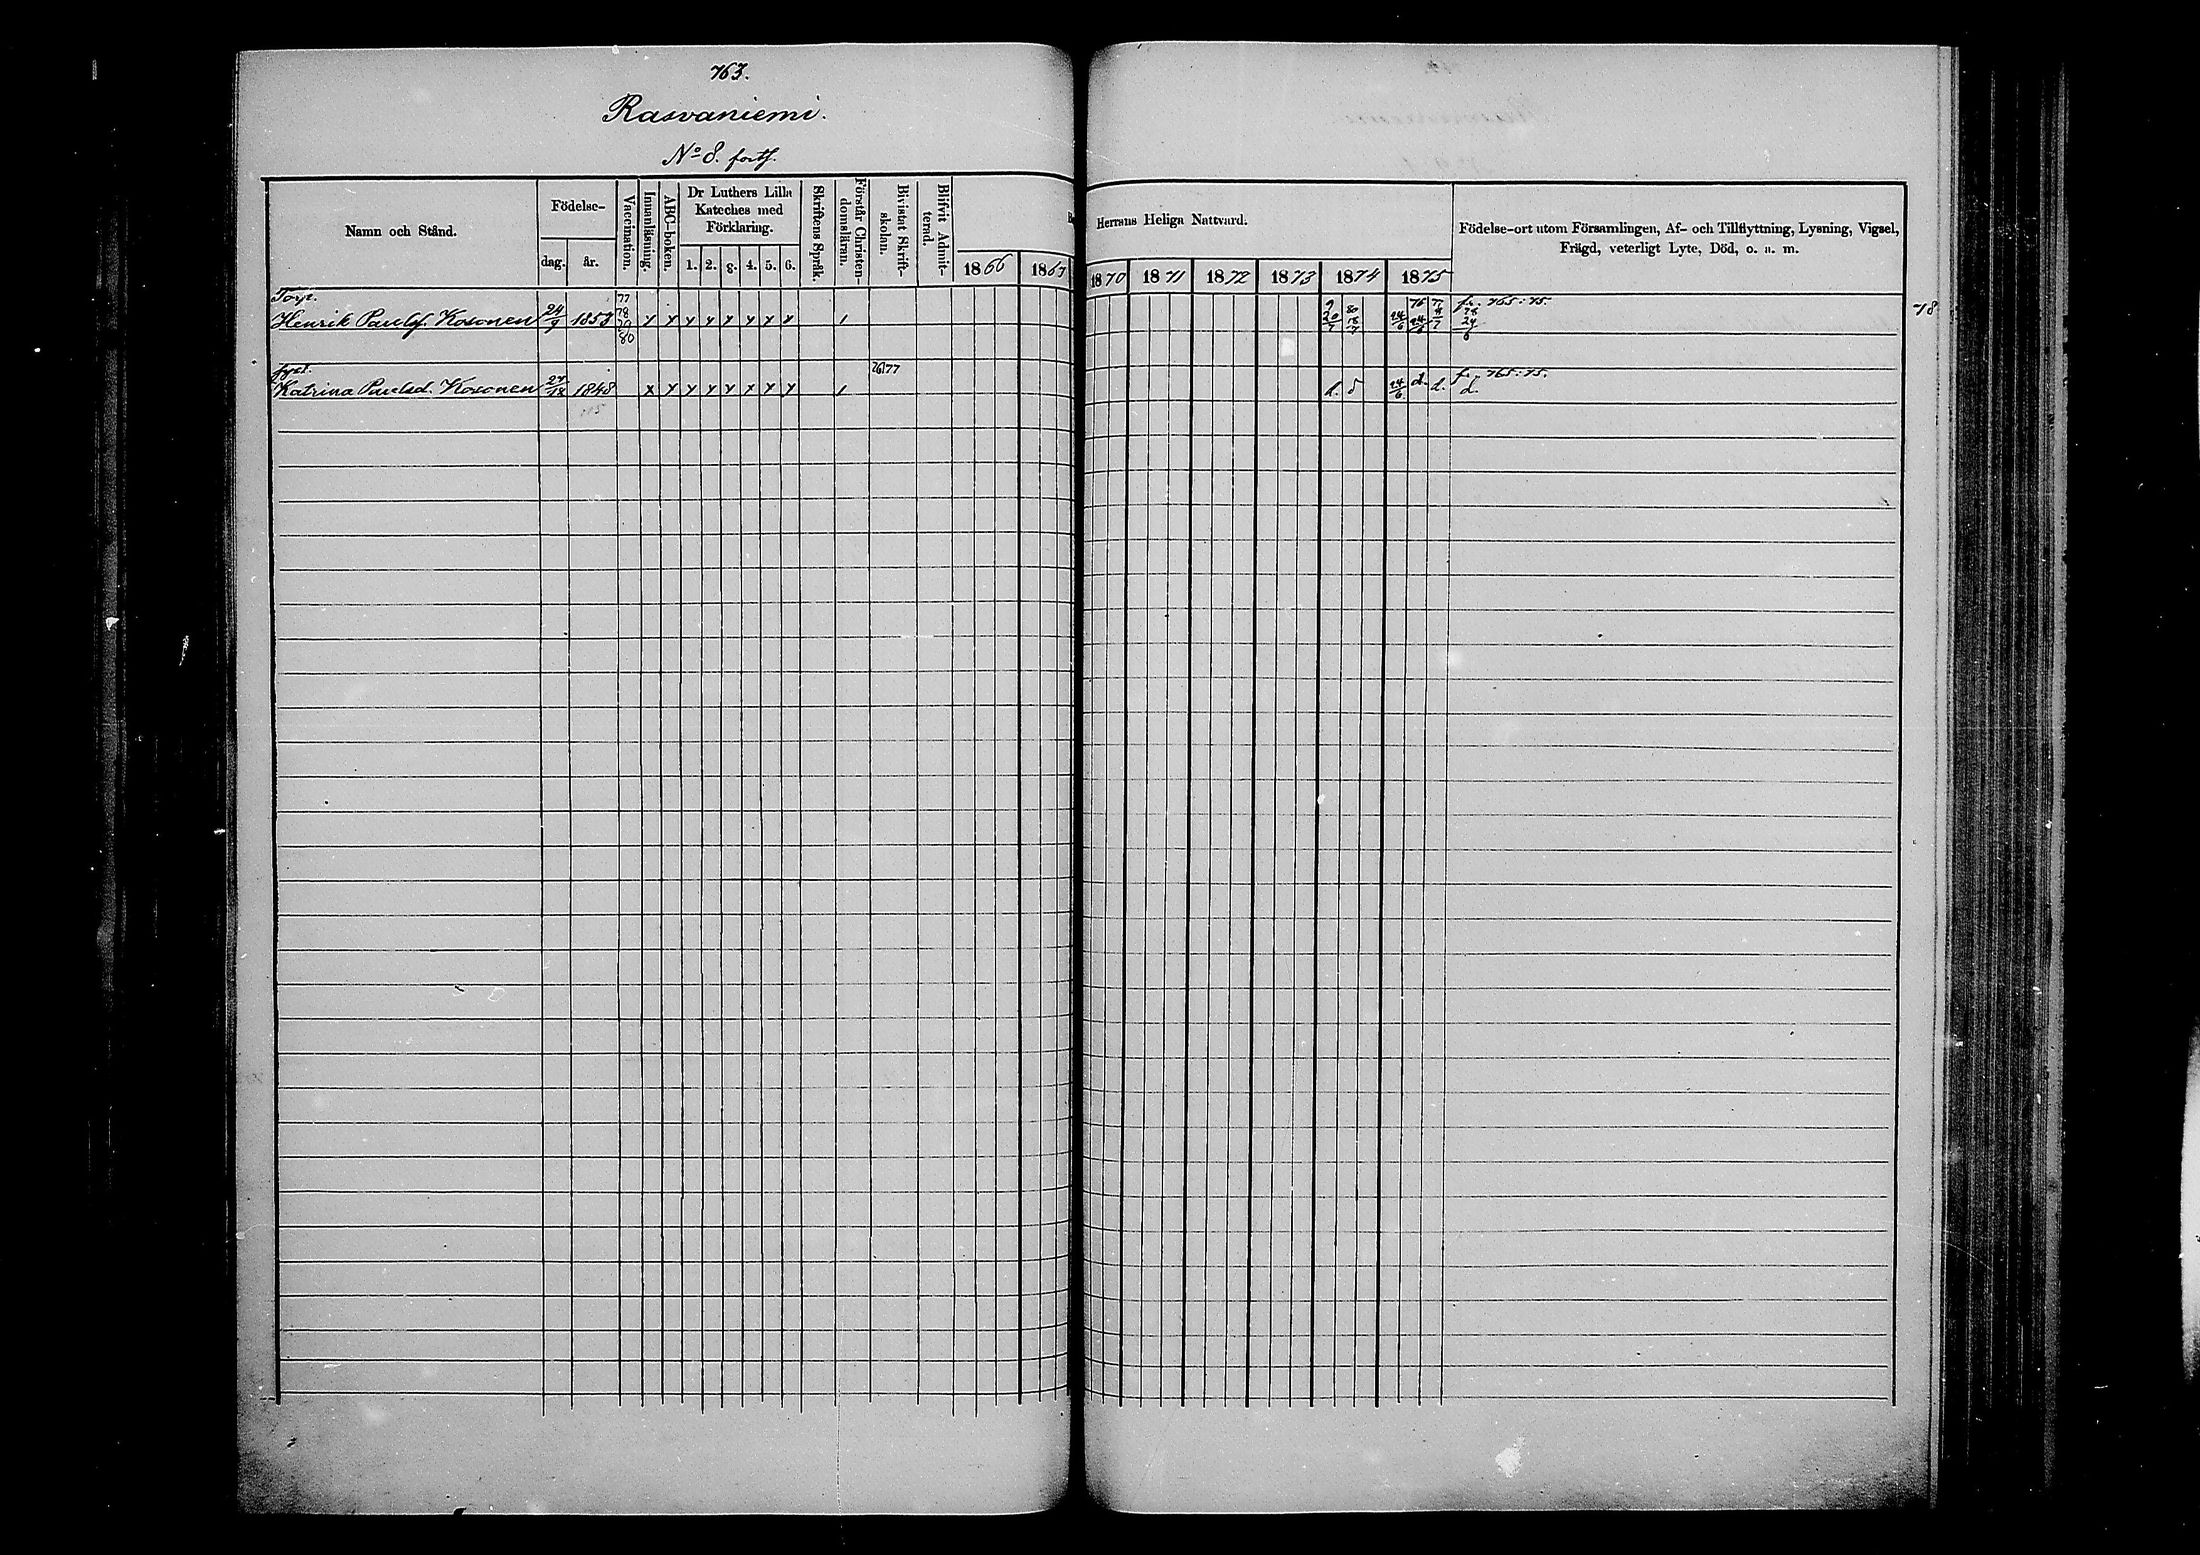 763.
Rasvaniemi.
No 8. forts.
Namn och Stånd.
Födelse-
dag. år.
Vaccination.
Innanläsning.
ABC-boken.
Dr Luthers Lilla Kateches med Förklaring.
1. 2. 3. 4. 5. 6.
Skriftens Språk.
Förstår Christen-domsläran.
Bivistat Skrift-skolan.
Blifvit Admit-terad.
Herrans Heliga Nattvard.
1866 1867 1870 1871 1872 1873 1874 1875
Födelse-ort utom Församlingen, Af- och Tillflyttning, Lysning, Vigsel,
Frägd, veterligt Lyte, Död, o. a. m.
Torp.
77 9 80 76 77 fr. 765:75.
Henrik Paulsf. Kosonen 24/9 1853 78 x x x x x x x x 1 20/7 18/7 24/6 24/6 78 24/6 78
80
fyst. 76 77 fr. 765:75.
Katrina Paulsd. Kosonen 1848 x x x x x x x x 1 d. d 24/6 d. d. d.